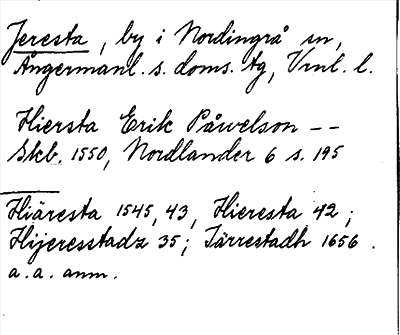 Jeresta, by i Nordingrå sn,
Ångermanl. s. doms. tg, Vrnl. l.
Hiersta Erik Påwelson --
Skb. 1550, Nordlander 6 s. 195
Hiäresta 1545, 43, Hieresta 42;
Hijeresstadz 35; Järrestadh 1656.
a. a. anm.